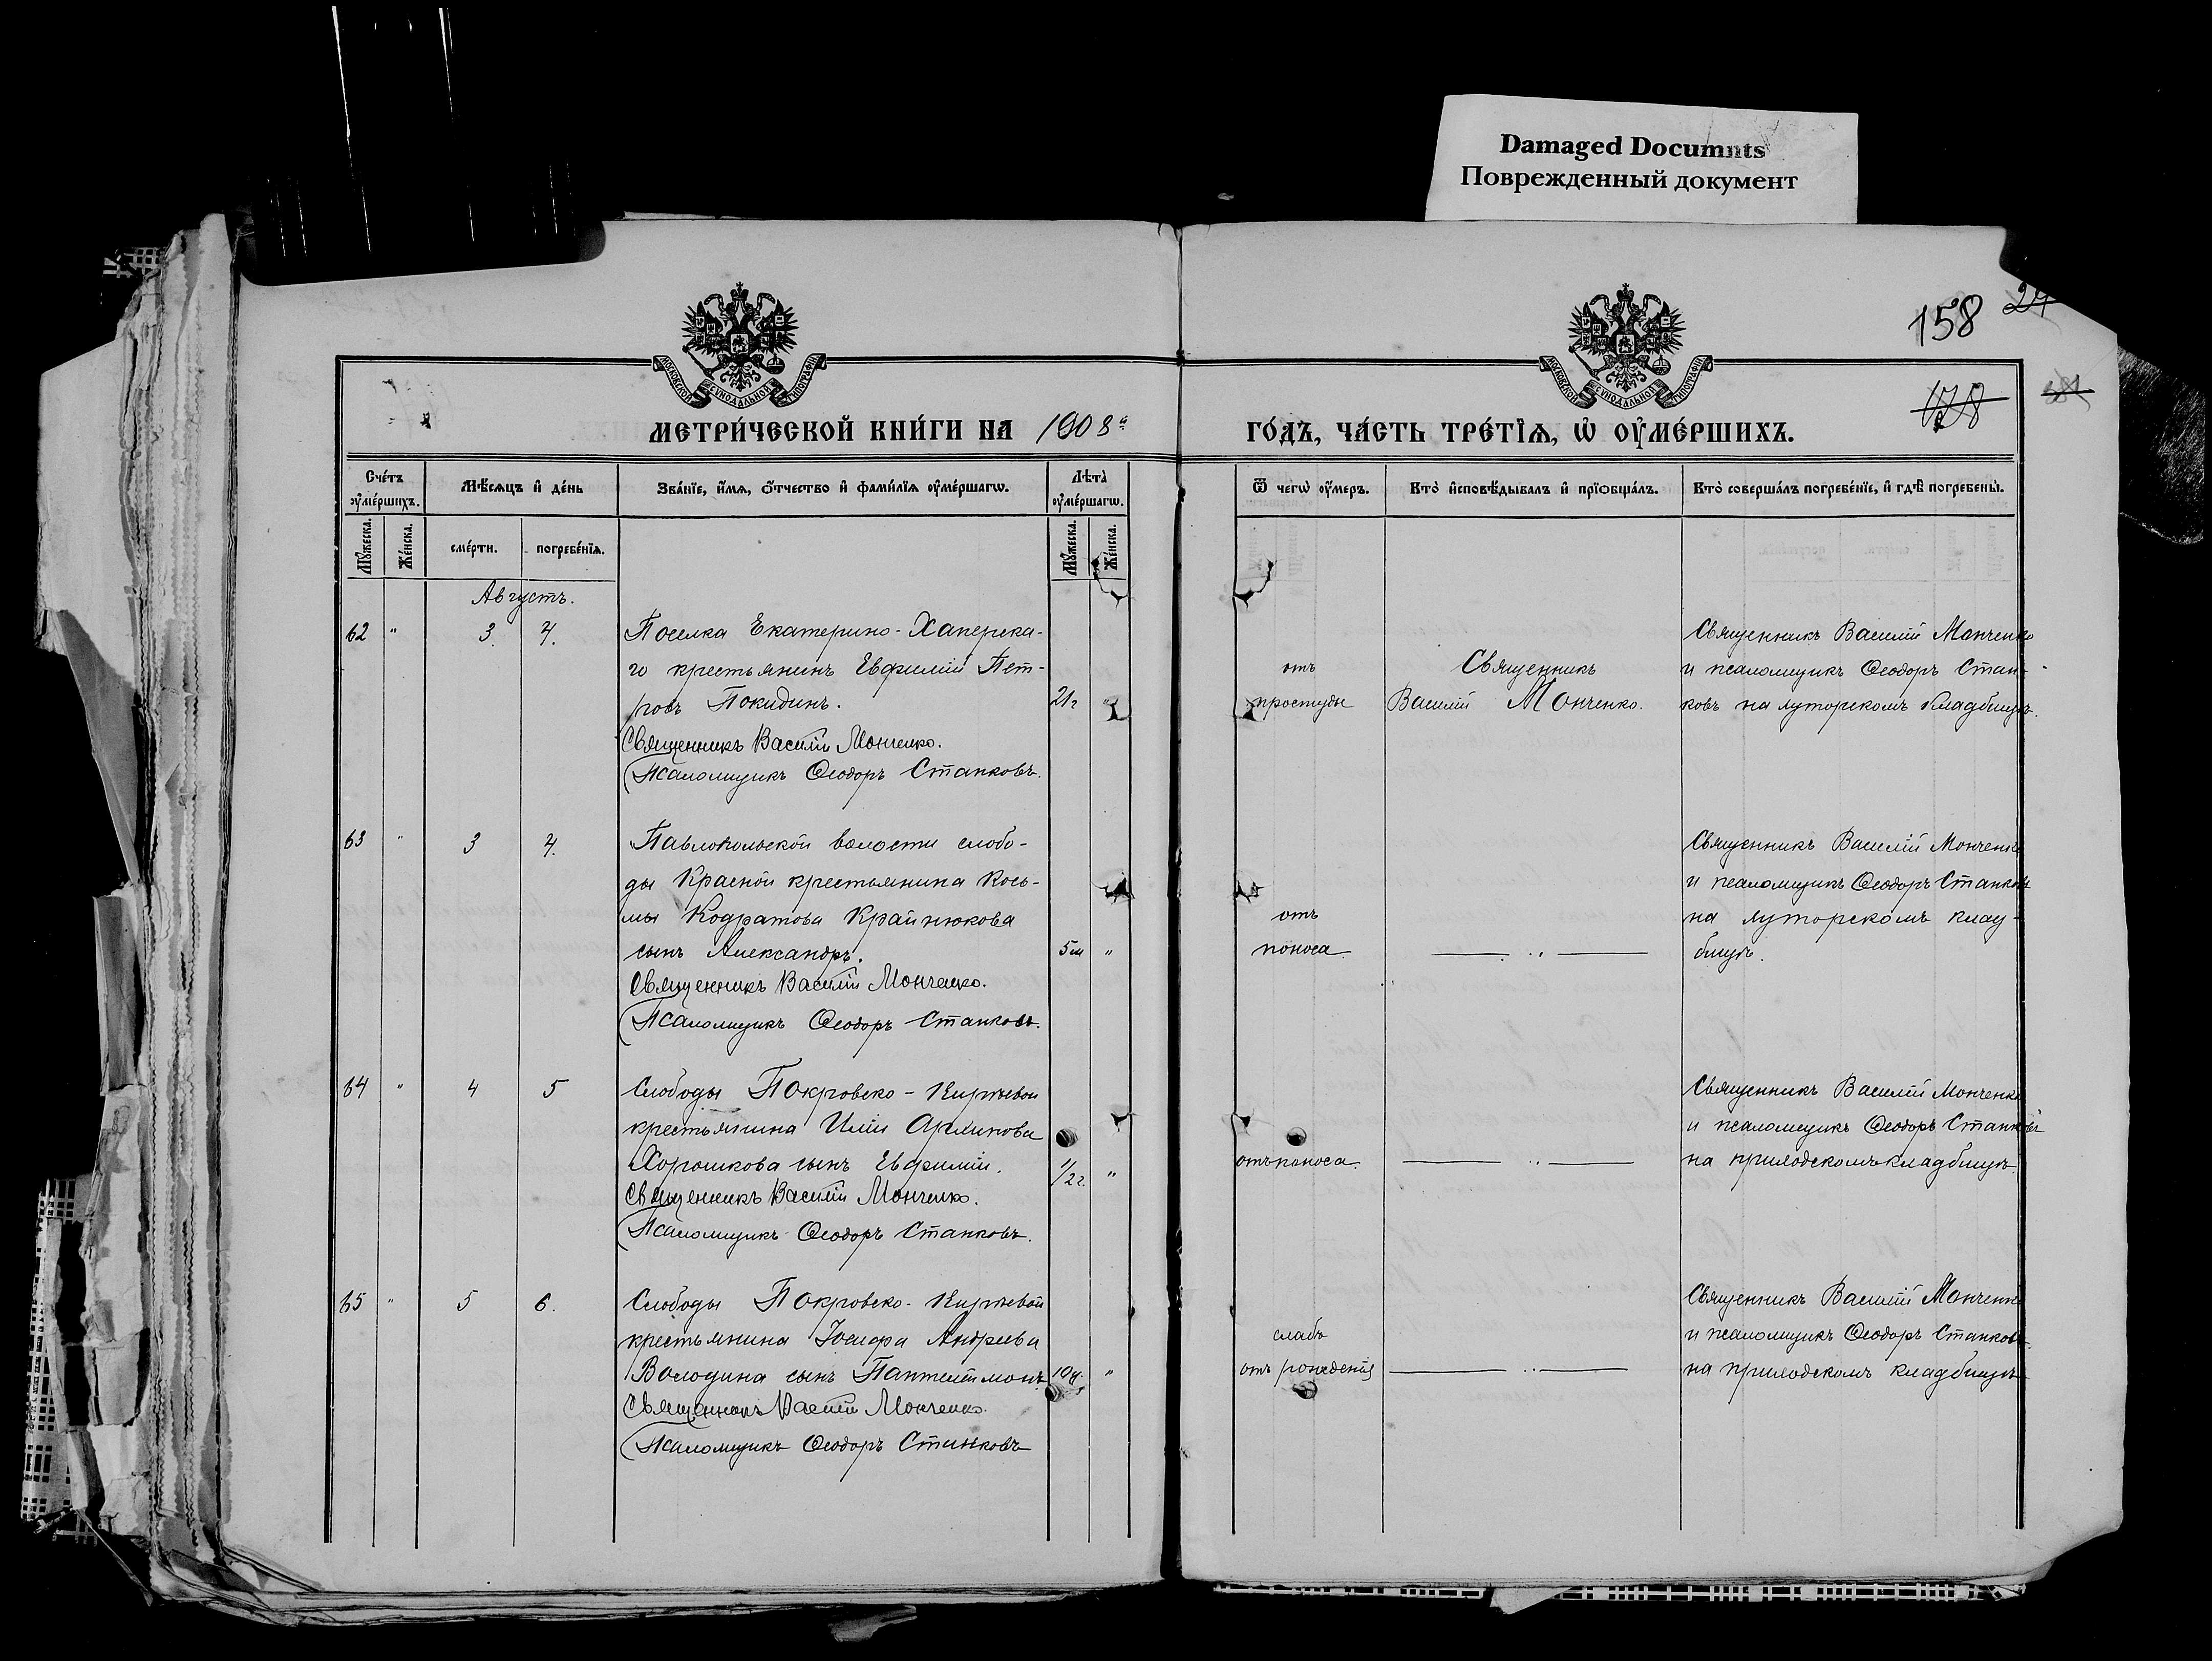 Damaged Documnts
Поврежденный документ
158 24
178
МОСКОВСКОЙ СѴНОДАЛЬНОЙ ТИПОГРАФІИ
МОСКОВСКОЙ СѴНОДАЛЬНОЙ ТИПОГРАФІИ
МЕТРИ́ЧЕСКОЙ КНИ́ГИ НА 1908й ГО́ДЪ, ЧА́СТЬ ТРЕ́ТІѦ, Ѡ ОУМЕ́РШИХЪ.
Сче́тъ оуме́ршихъ.
Мѣ́сяцъ и де́нь
Зва́нїе, и́мя, ѻ́тчество и фами́лїя оуме́ршагѡ.
Лѣта̀ оуме́ршагѡ.
Ѿ чегѡ̀ оу́меръ.
Кто̀ исповѣ́дывалъ и прїѻбща́лъ.
Кто̀ соверша́лъ погребе́нїе, и гдѣ̀ погребены̀.
Мꙋ́жеска.
Же́нска.
сме́рти.
погребе́нїя.
Мꙋ́жеска.
Же́нска.
Августъ.
62 " 3. 4. Поселка Екатерино-Хаперска-
го крестьянинъ Евфимій Пет-
ровъ Покидинъ. 21г "
Священникъ Василій Монченко.
Псаломщикъ Ѳеодоръ Станковъ.
отъ
простуды
Священникъ
Василій Монченко.
Священникъ Василій Монченко
и псаломщикъ Ѳеодоръ Стан-
ковъ на хуторскомъ кладбищѣ.
63 " 3 4. Павлопольской волости слобо-
ды Красной крестьянина Кось-
мы Кодратова Крайнюкова
сынъ Александръ. 5м "
Священникъ Василій Монченко.
Псаломщикъ Ѳеодоръ Станковъ.
отъ
поноса. — " —
Священникъ Василій Монченко
и псаломщикъ Ѳеодоръ Станковъ
на хуторскомъ клад-
бищѣ.
64 " 4 5 Слободы Покровско-Кирѣевой
крестьянина Иліи Архипова
Хорошкова сынъ Евфимій. 1/2г. "
Священникъ Василій Монченко.
Псаломщикъ Ѳеодоръ Станковъ.
отъ поноса. — " —
Священникъ Василій Монченко
и псаломщикъ Ѳеодоръ Станковъ
на приходскомъ кладбищѣ.
65 " 5 6. Слободы Покровско-Кирѣевой
крестьянина Іосифа Андреева
Володина сынъ Пантелеимонъ 10д. "
Священникъ Василій Монченко.
Псаломщикъ Ѳеодоръ Станковъ
слабъ
отъ рожденія — " —
Священникъ Василій Монченко
и псаломщикъ Ѳеодоръ Станковъ
на приходскомъ кладбищѣ